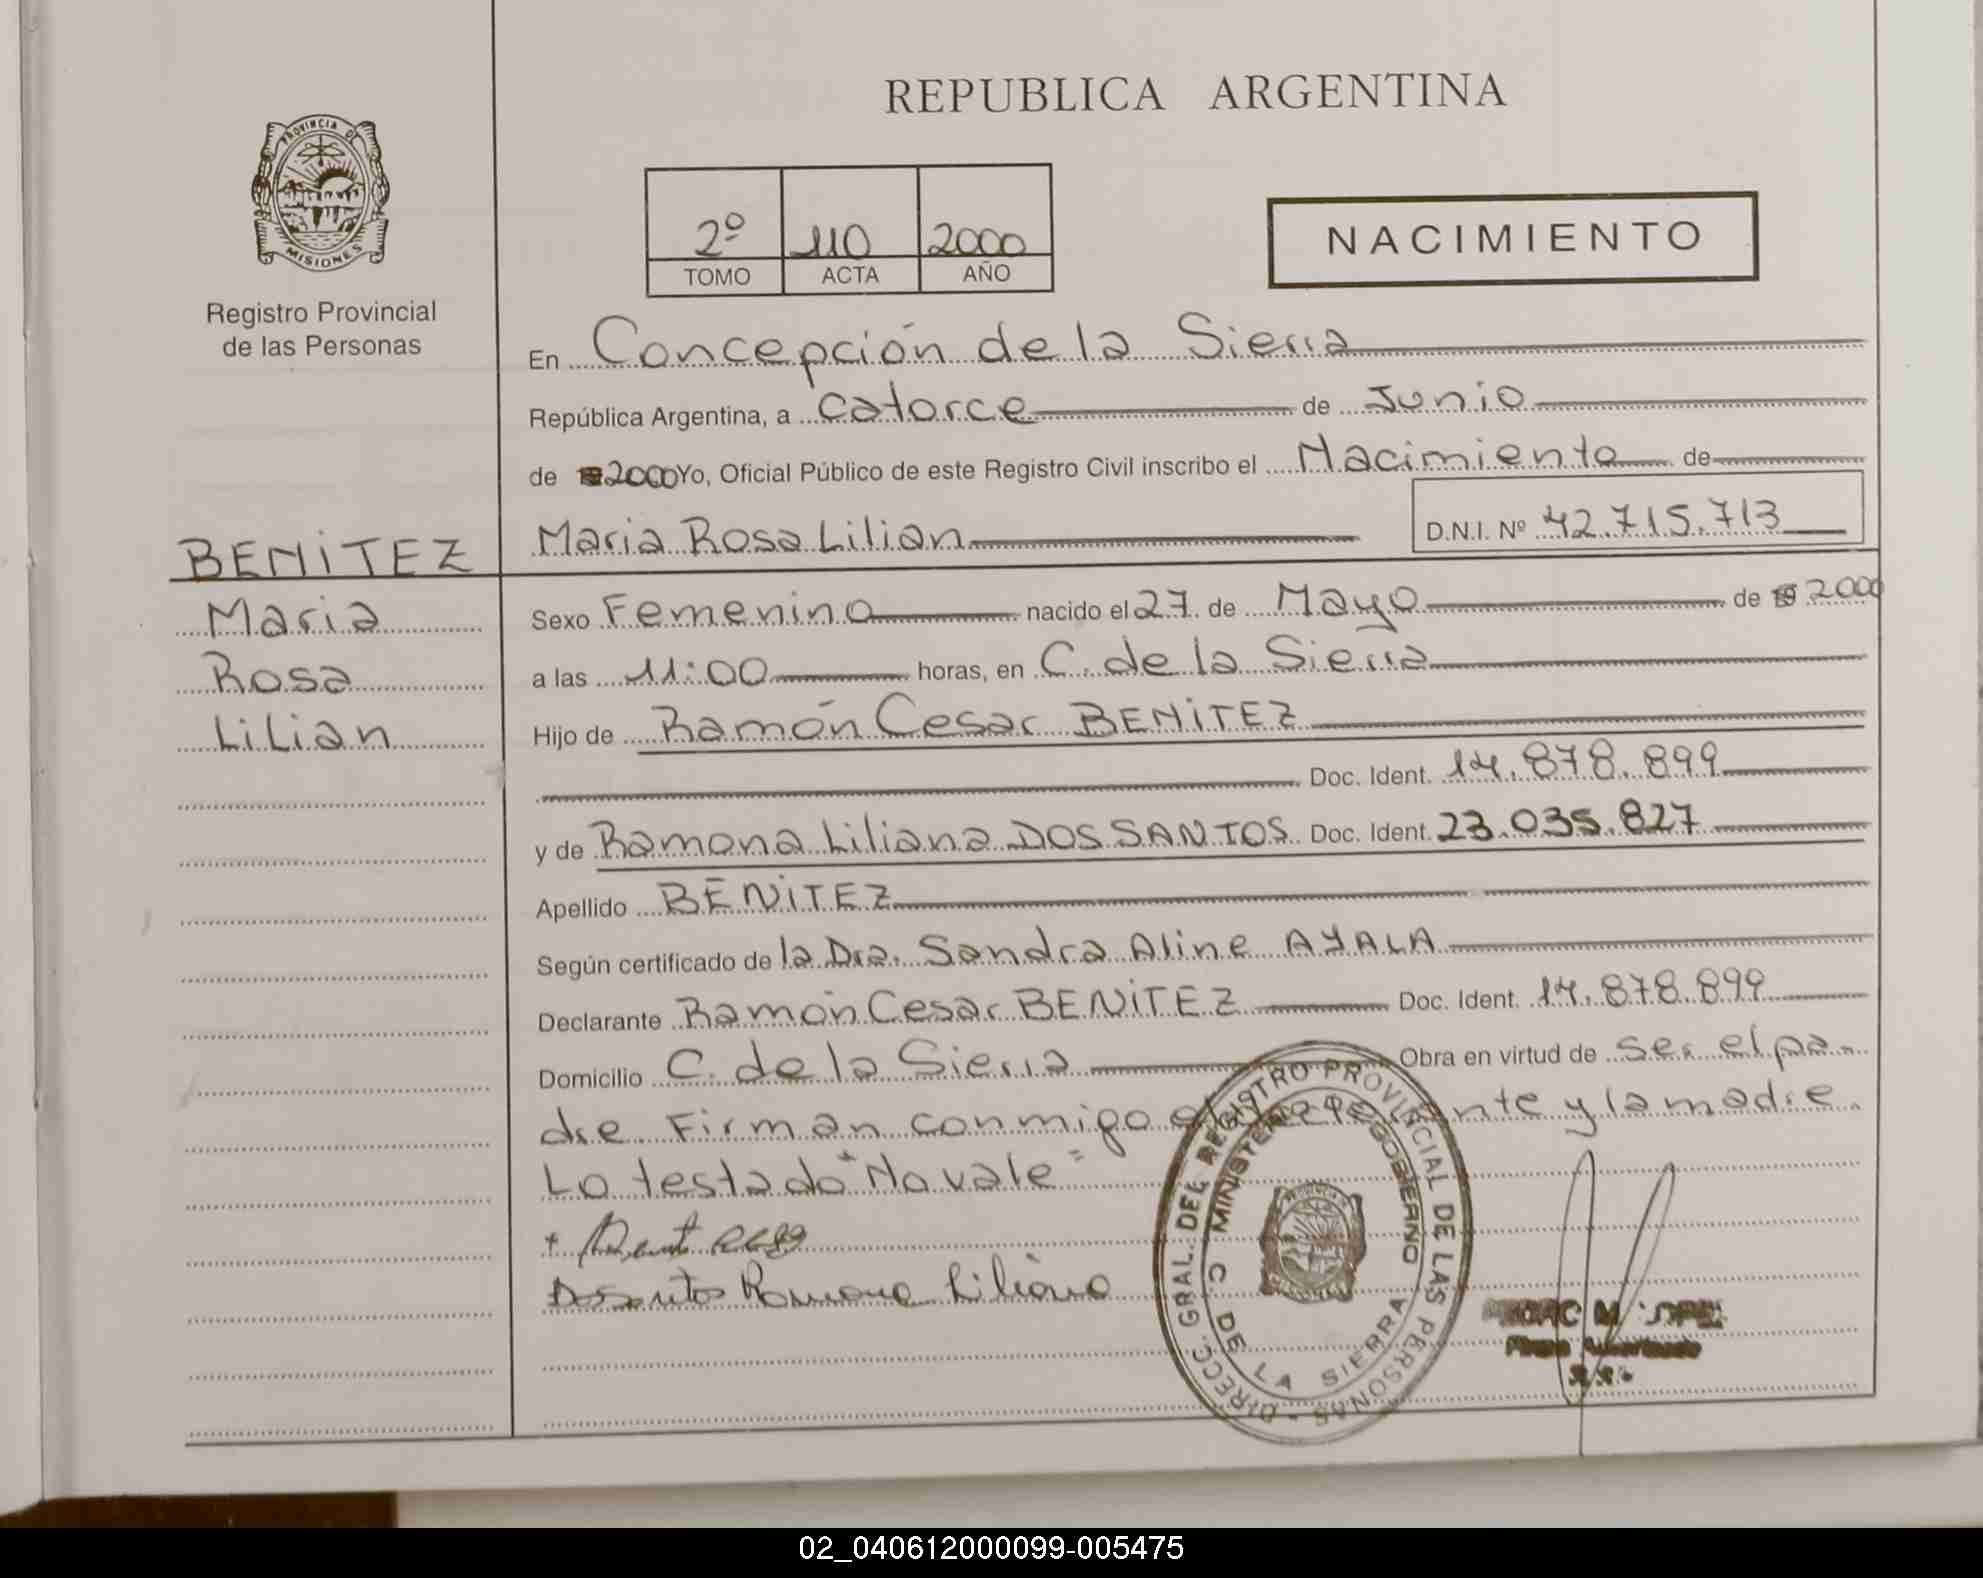 REPUBLICA ARGENTINA
PROVINCIA DE MISIONES
Registro Provincial
de las Personas
2º 110 2000
TOMO ACTA AÑO
NACIMIENTO
En Concepción de la Sierra
República Argentina, a Catorce de Junio
de 2000 Yo, Oficial Público de este Registro Civil inscribo el Nacimiento de
BENITEZ
Maria
Rosa
Lilian
Maria Rosa Lilian D.N.I. Nº 42.715.713
Sexo Femenino nacido el 27 de Mayo de 2000
a las 11:00 horas, en C. de la Sierra
Hijo de Ramón Cesar BENITEZ
Doc. Ident. 14.878.899
y de Ramona Liliana DOS SANTOS Doc. Ident. 23.035.827
Apellido BENITEZ
Según certificado de la Dra. Sandra Aline AYALA
Declarante Ramón Cesar BENITEZ Doc. Ident. 14.878.899
Domicilio C. de la Sierra Obra en virtud de ser el pa-
dre. Firman conmigo el y la madre.
Lo testado "No vale"
Dos santos Ramona Liliana
DIRECC. GRAL. DEL REGISTRO PROVINCIAL DE LAS PERSONAS
MINISTERIO DE GOBIERNO
C. DE LA SIERRA
02_040612000099-005475